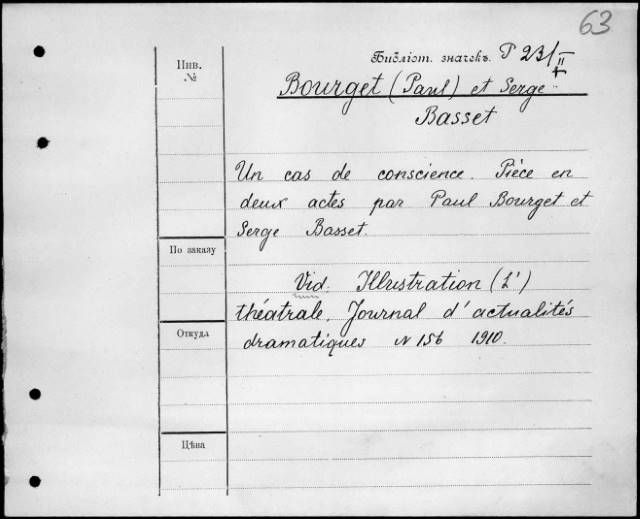 63
Библіот. значекъ. P 23/II
Инв.
№
Bourget (Paul) et Serge
Basset
Un cas de conscience. Pièce en
deux actes par Paul Bourget et
Serge Basset.
По заказу
Vid. Illustration (L')
théatrale. Journal d'actualités
Откуда
dramatiques N 156 1910.
Цѣна